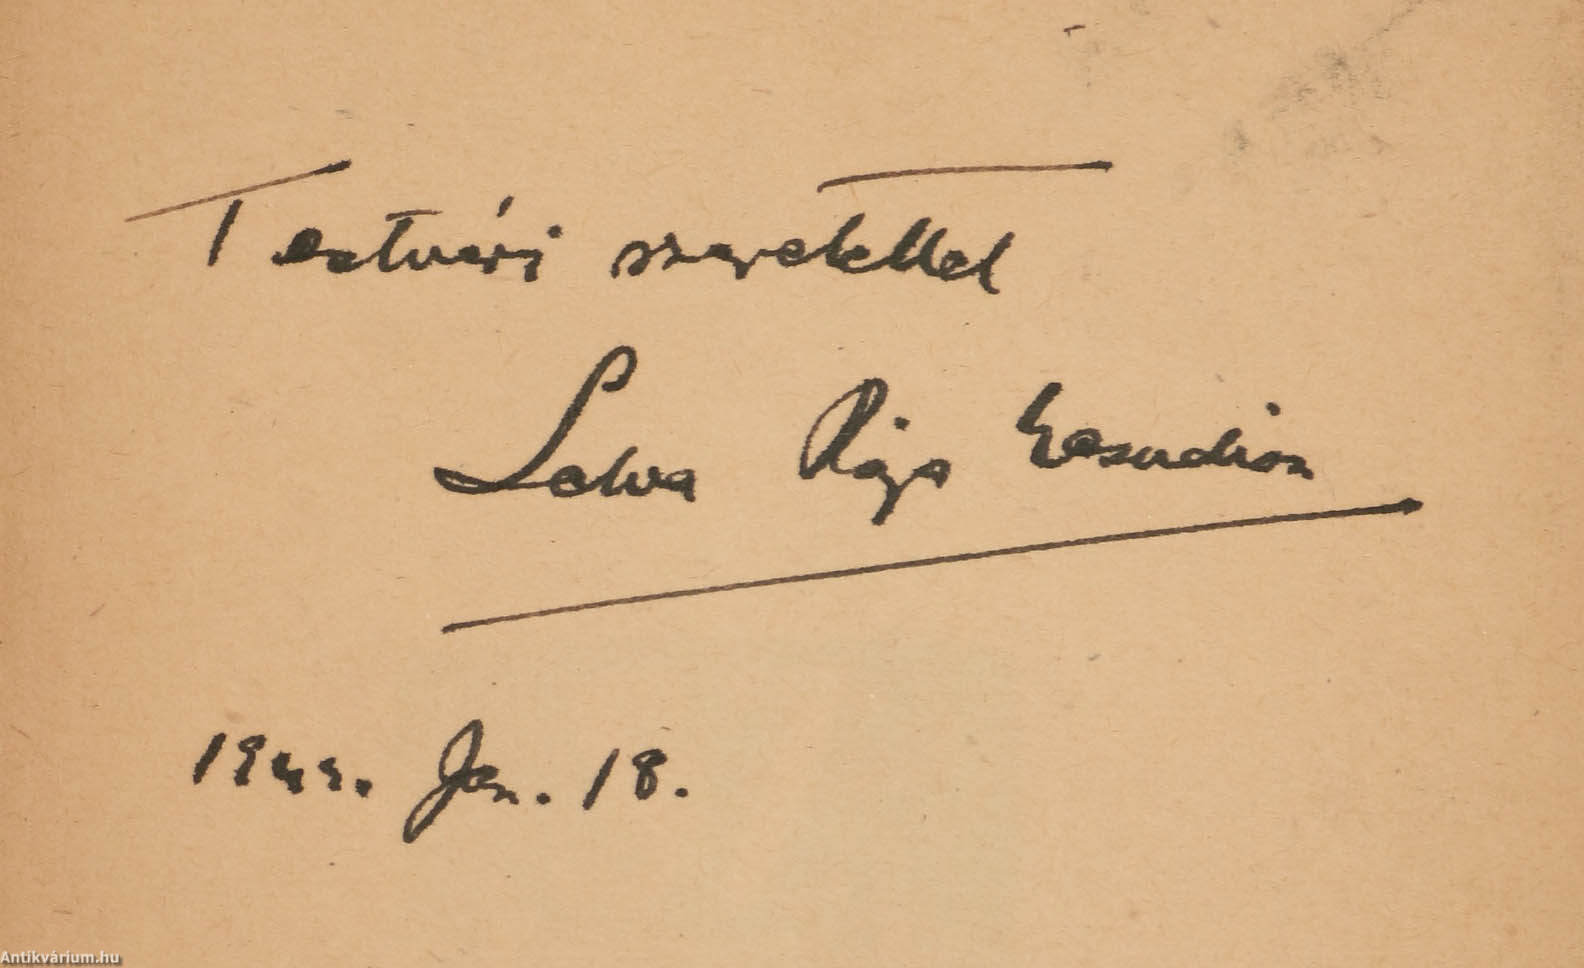 Testvéri szeretettel
Selva Raja Yesudian
1944. Jan. 18.
Antikvárium.hu